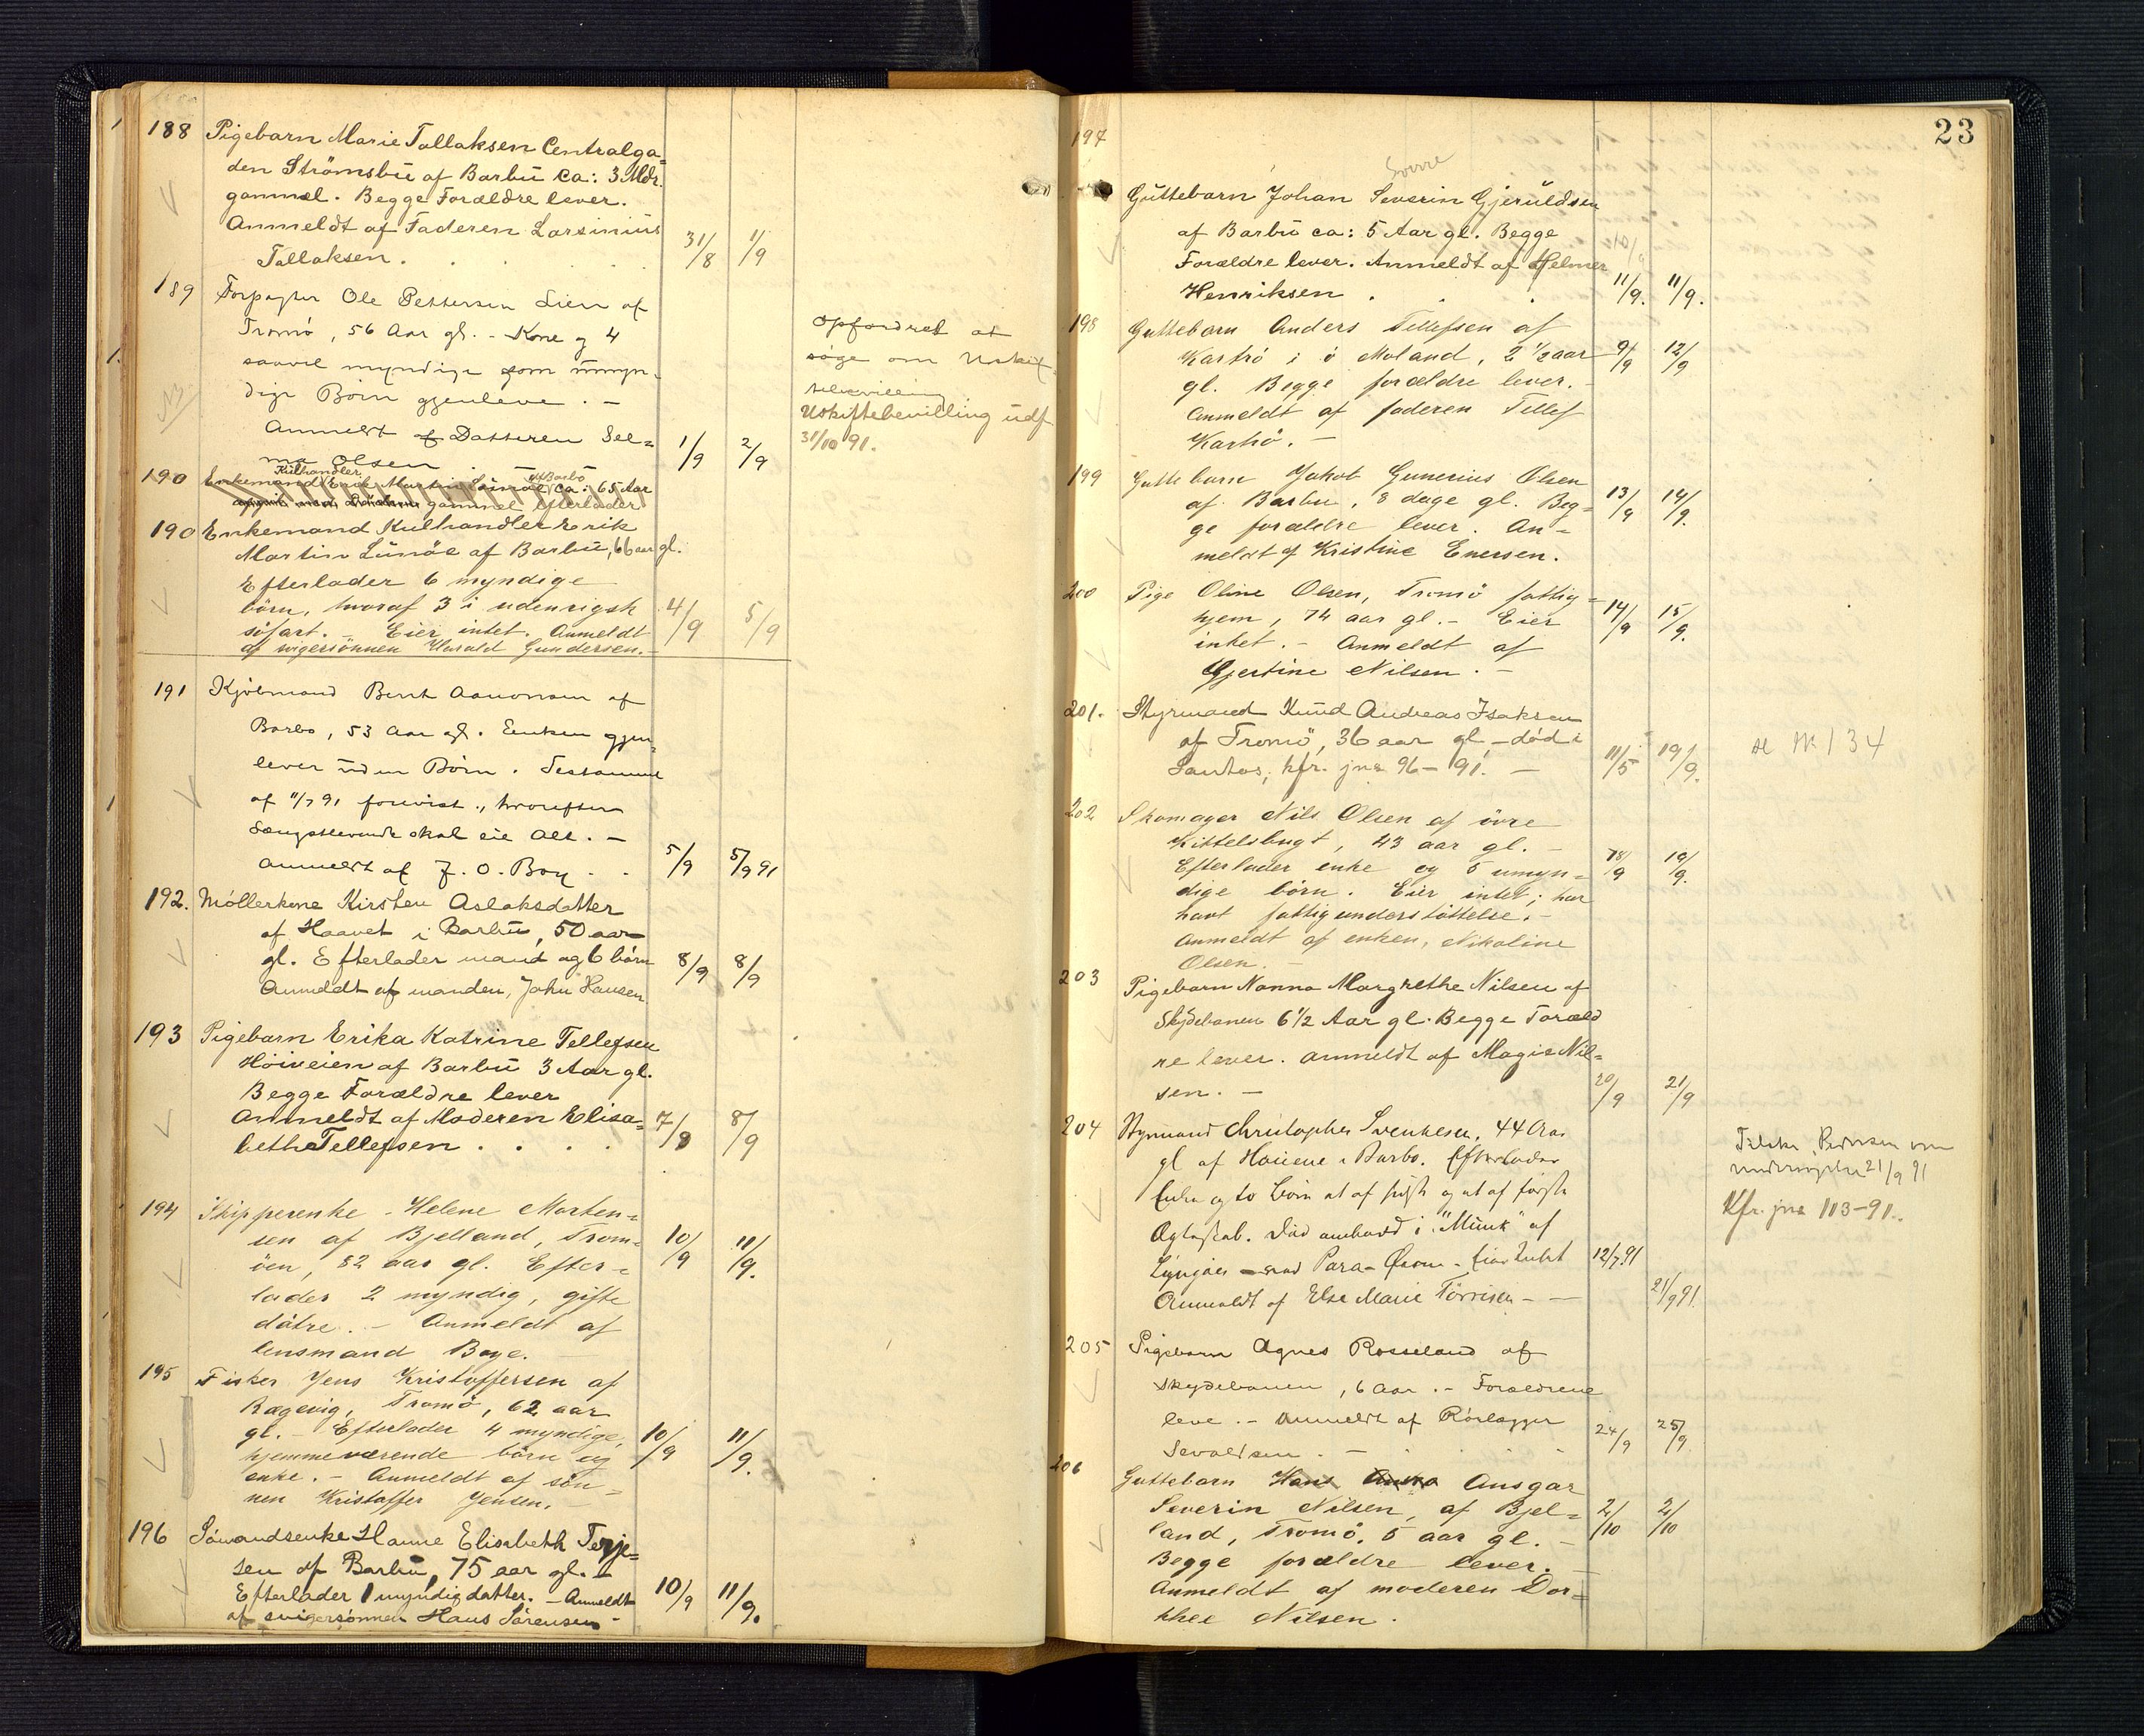 188 Pigebarn Marie Tallaksen Centralga=
den Strömsbu af Barbu ca: 3 Mdr.
gammel. Begge Forældre lever.
Anmeldt af Faderen Larsinius
Tallaksen . 31/8 1/9
189 Forpagter Ole Pettersen Lien af
Tromö, 56 Aar gl. - Kone og 4
saavel myndige som umyn-
dige Börn gjenleve . -
Anmeldt af Datteren Sel=
ma Olsen 1/9 2/9
opfordret at
søge om Uskif-
tebevilling
Uskiftebevilling udf
31/10 91.
190 Enkemand Kulhandler Erik Martin af Barbö ca: 65 Aar
gammel efterlader
190 Enkemand Kulhandler Erik
Martin Lunöe af Barbu, 66 aar gl.
Efterlader 6 myndige
börn, hvoraf 3 i udenrigsk
söfart. - Eier intet. Anmeldt
af svigersönnen Harald Gundersen. 4/9 5/9
191 Kjöbmand Bent Aanonsen af
Barbo, 53 Aar gl. Enken gjen-
lever uden Börn . Testamente
af 11/7 91 forevist, hvorefter
Længstlevende skal eie Alt. -
Anmeldt af J. O. Boy . . 5/9 5/9 91
192. Möllerkone Kirsten Aslaksdatter
af Haavet i Barbu, 50 aar
gl. Efterlader mand og 6 börn
Anmeldt af manden, John Hansen. 8/9 8/9
193 Pigebarn Erika Katrine Tellefsen
Höiveien af Barbu 3 Aar gl.
Begge Forældre lever
Anmeldt af Moderen Elisa=
beth Tellefsen . . . . 7/8 8/9
194 Skipperenke - Helene Morten=
sen af Bjelland, Trom=
öen, 82 aar gl. Efter=
lader 2 myndig, gifte
dötre. - Anmeldt af
lensmand Boye. 10/9 11/9.
195 Fisker Jens Kristoffersen af
Rægevig, Tromö, 62 aar
gl. - Efterlader 4 myndige,
hjemmeværende börn og
enke. - Anmeldt af sön=
nen Kristoffer Jensen. 10/9 11/9.
196 Sömandsenke Hanne Elisabeth Terje=
sen af Barbu, 75 aar gl. -
Efterlader 1 myndig datter. - Anmeldt
af svigersönnen Hans Sörensen - 10/9 11/9.
23
197
Sverre
Guttebarn Johan Severin Gjeruldsen
af Barbu ca: 5 Aar gl. Begge
Forældre lever. Anmeldt af Helmer
Henriksen . . . 11/9. 11/9.
198 Guttebarn Anders Tellefsen af
Kaströ i ö Moland, 2 1/2 aar
gl. Begge forældre lever. -
Anmeldt af faderen Tellef
Kaströ. - 9/9 12/9
199 Guttebarn Jakob Gunerius Olsen
af Barbu, 8 dage gl. Beg=
ge forældre lever. An=
meldt af Kristine Enersen. 13/9 14/9.
200 Pige Oline Olsen, Tromö fattig=
hjem, 74 aar gl. - Eier
intet. - Anmeldt af
Gjertine Nilsen . - 14/9 15/9.
201. Styrmand Knud Andreas Isaksen
af Tromö, 36 aar gl - död i
Santos, kfr. jna 96 - 91. - 11/5 19/9.
134
202 Skomager Nils Olsen af övre
Kittelsbugt, 43 aar gl. -
Efterlader enke og 5 umyn=
dige börn. Eier intet; har
havt fattigunderstöttelse. -
Anmeldt af enken, Nikoline
Olsen. - 18/9 19/9.
203 Pigebarn Nanna Margrethe Nilsen af
Skydebanen 6 1/2 Aar gl. Begge Foræld
re lever. anmeldt af Magie Nil=
sen. - 20/9 21/9
204 Styrmand Christopher Svenksen, 44 Aar
gl af Houene i Barbo. Efterlader
Enke og to Börn et af sidste og et af förste
Ægteskab. Död ombord i "Münk" af
Lyngör - ved Para - Eier Intet
Anmeldt af Else Marie Törrisen - - 12/7.91 21/9 91.
Pedersen om
21/9 91
Kfr. jna 113-91.
205 Pigebarn Agnes Rosseland af
Skydebanen, 6 Aar . - Forældrene
leve . - Anmeldt af Rörlægger
Sevaldsen . - . . . 24/9 25/9
206 Guttebarn Hans Ansgar
Severin Nilsen, af Bjel=
land, Tromö, 5 aar gl. -
Begge forældre lever. -
Anmeldt af moderen Dor=
thee Nilsen . 2/10 2/10